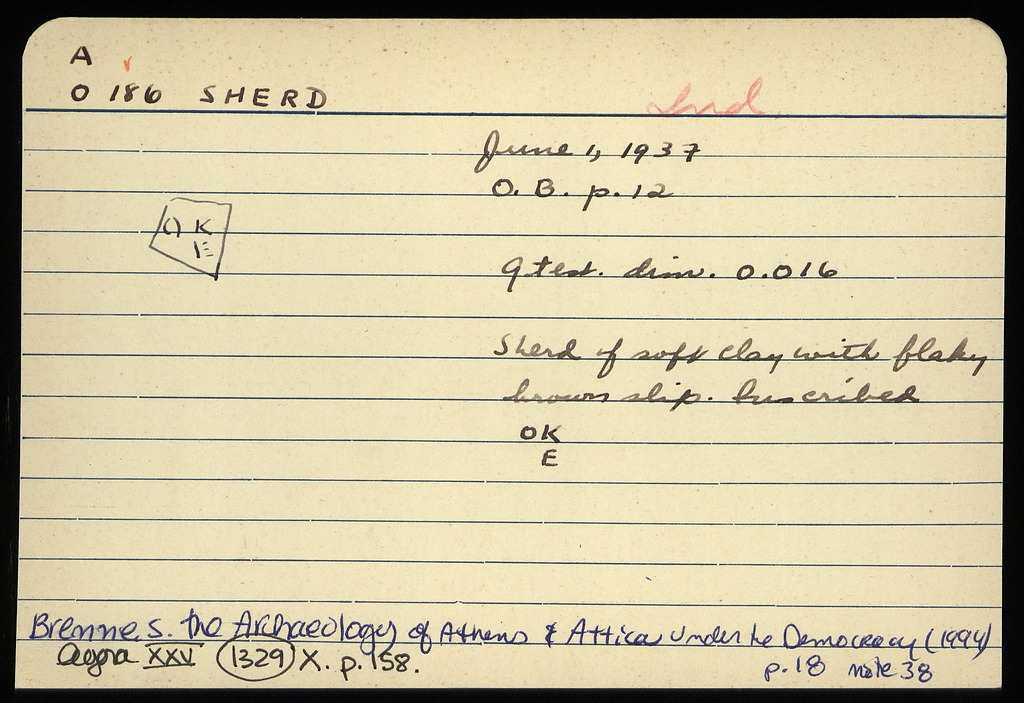 A
O 186 SHERD
Ind
June 1, 1937
O. B. p. 12
O K
E
gtest. dim. 0.016
Sherd of soft clay with flaky
brown slip. Inscribed
OK
E
Brenne, S. The Archaeology of Athens & Attica under the Democracy (1994)
p. 18 note 38
Agora XXV 1329 X. p. 158.